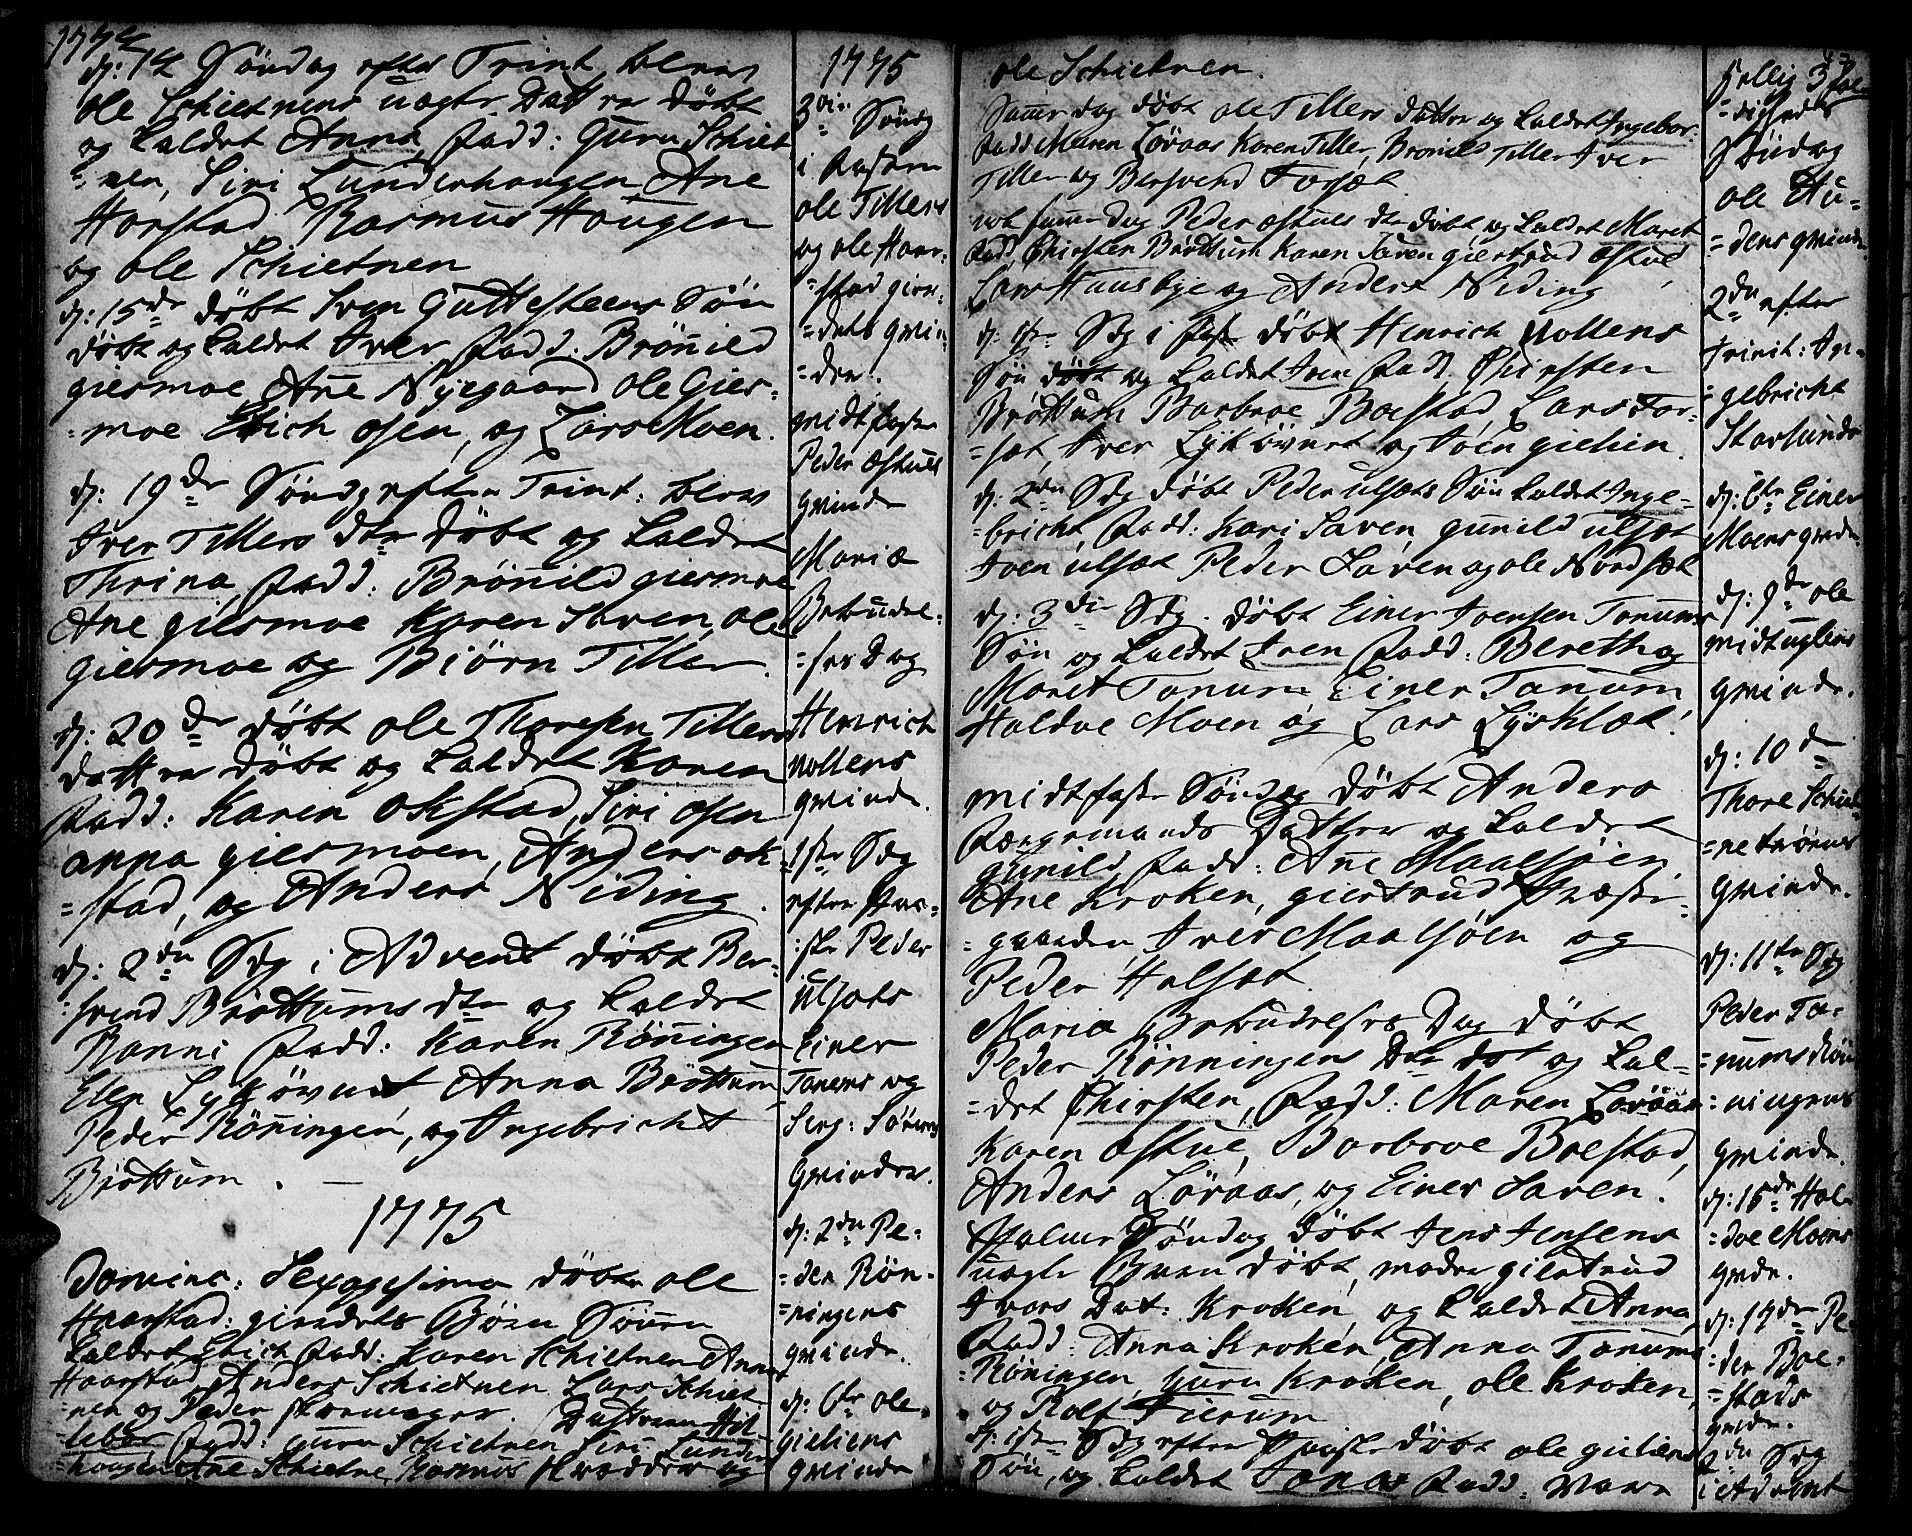 1774
d: 14 Søndag efter Trinit blev
ole Schietnens uægte Datter døbt
og kaldet Anna, Fadd: Guru Schiet
=nen, Siri Lunderhaugen Ane
Harstad Rasmus Haugen
og ole Schietnen
d: 15de døbt Sven Guttesteens Søn
døbt og kaldet Iver, Fadd: Brønild
giesmoe, Ane Nyegaard ole Gies=
=moe Erich osen, og Lars Moen.
d: 19de Søndag efter Trinit: blev
Iver Tillers dtr døbt og kaldet
Thrina, Fadd: Brønild giesmoe
Ane giesmoe Karen Saven, ole
giesmoe og Biørn Tiller.
d: 20de døbt ole Thoresen Tillers
datter døbt og kaldet Karen
Fadd: Karen okstad, Siri osen
anna giesmoen, Anders ok=
=stad, og Anders Niding.
d: 2den Sdg i Advent døbt Ber=
=svend Brøttums dtr og kaldet
Ranni Fadd: Karen Rønningen
Elen Lykøvnet Anna Brøttum
Peder Rønningen, og Ingebricht
Brøttum.
1775
Domine: Sexagesima døbt ole
Haarstad: giendets Børn Sønen
kaldet Erich Fadd: Karen Schietnen Anne
Haarstad, Anders Schietnen Lars Schiet
nen og Peder . Datteren
Fadd: guru Schietnen Siri Lunder
haugen Ane Schietne, Rasmus og
1775
3die Søndg
i Fasten
ole Tillers
og ole Haar=
=stad gien=
=dets qvin=
=der.
midfaste
Peder østues
qvinde
Mariæ
Bebudel=
=ses Dag
Henrich
Mollens
qvinde.
1ste Sdg
efter Paa=
=ske Peder
ulsets
Einer
Tanems og
Serg: Sørens
Qvinder.
d: 2den Pe=
=der Røn=
=ningens
qvinde.
d: 6te ole
gieliens
qvinde
ole Schietnen.
Samme dag døbt ole Tillers datter og kaldet Ingebor.
Fadd Maren Løraas Karen Tiller, Bronild Tiller Iver
Tiller og Bersvend Forsæt.
samme Dag Peder østues dtr døbt og kaldet Maret
Fadd, Chirsten Brøttum Karen Saven giertrud østue
Lars Huusbye og Anders Niding
d: 1ste Sdg i Faste døbt Henrich Mollens
Søn døbt og kaldet Iven Fadd, Chirsten
Brøttum Barbroe Boestad, Lars For=
=sæt, Iver Lykøvnet og Joen gielien.
d: 2den Sdg døbt Peder ulsets Søn kaldet Inge=
=bricht, Fadd: Kari Saven, gunild ulsæt
Iven ulsæt Peder Saven og ole Nordsæt
d: 3die Sdg. døbt Einer Ivensen Tanums
Søn og kaldet Iven Fadd: Bereth og
Maret Tanum Einer Tanum
Haldoe Moen og Lars Lysklæt.
midtfaste Søndag døbt Anders
Færgemands Datter og kaldet
gunild, Fadd: Ane Maalsøen
Ane Kroken, giertrud Præste=
=gaarden Iver Maalsøen og
Peder Halsæt.
Mariæ Bebudelses Dag døbt
Peder Rønningens Dtr døt og kal=
=det Chirsten, Fadd: Maren Løraas
Karen østue, Barbroe Boestad,
Anders Løraas, og Einer Saven.
Palme Søndag døbt Jens Jensens
uægte Barn døbt, modre giertrud
Ivars Dat: Kroken, og kaldet Anna,
Fadd: Anna Kroken, Anna Tanums
Rønningen, guru Kroken, ole Kroken,
og Rolf Tierum
d: 1ste Sdg efter Paaske døbt ole gieliens
Søn, og kaldet Jonas Fadd: Maren
hellig 3foe
=digheds
Søndag
ole Hu=
=dens qvinde
2den efter
Trinit: In=
=gebricht
Storlunds
d: 6te Einer
Moens qvde.
d: 9de ole
midtuglens
qvinde.
d: 10de
Thore Schiet=
=ne trøens
qvinde.
d: 11te Sdg
Peder Ta=
=nums Røn=
=ningens
qvinde.
d: 15de Hal
=doe Moens
qvde.
d: 17de Pe=
=der Boe=
=stads
qvde.
2den Sdg
i Advent